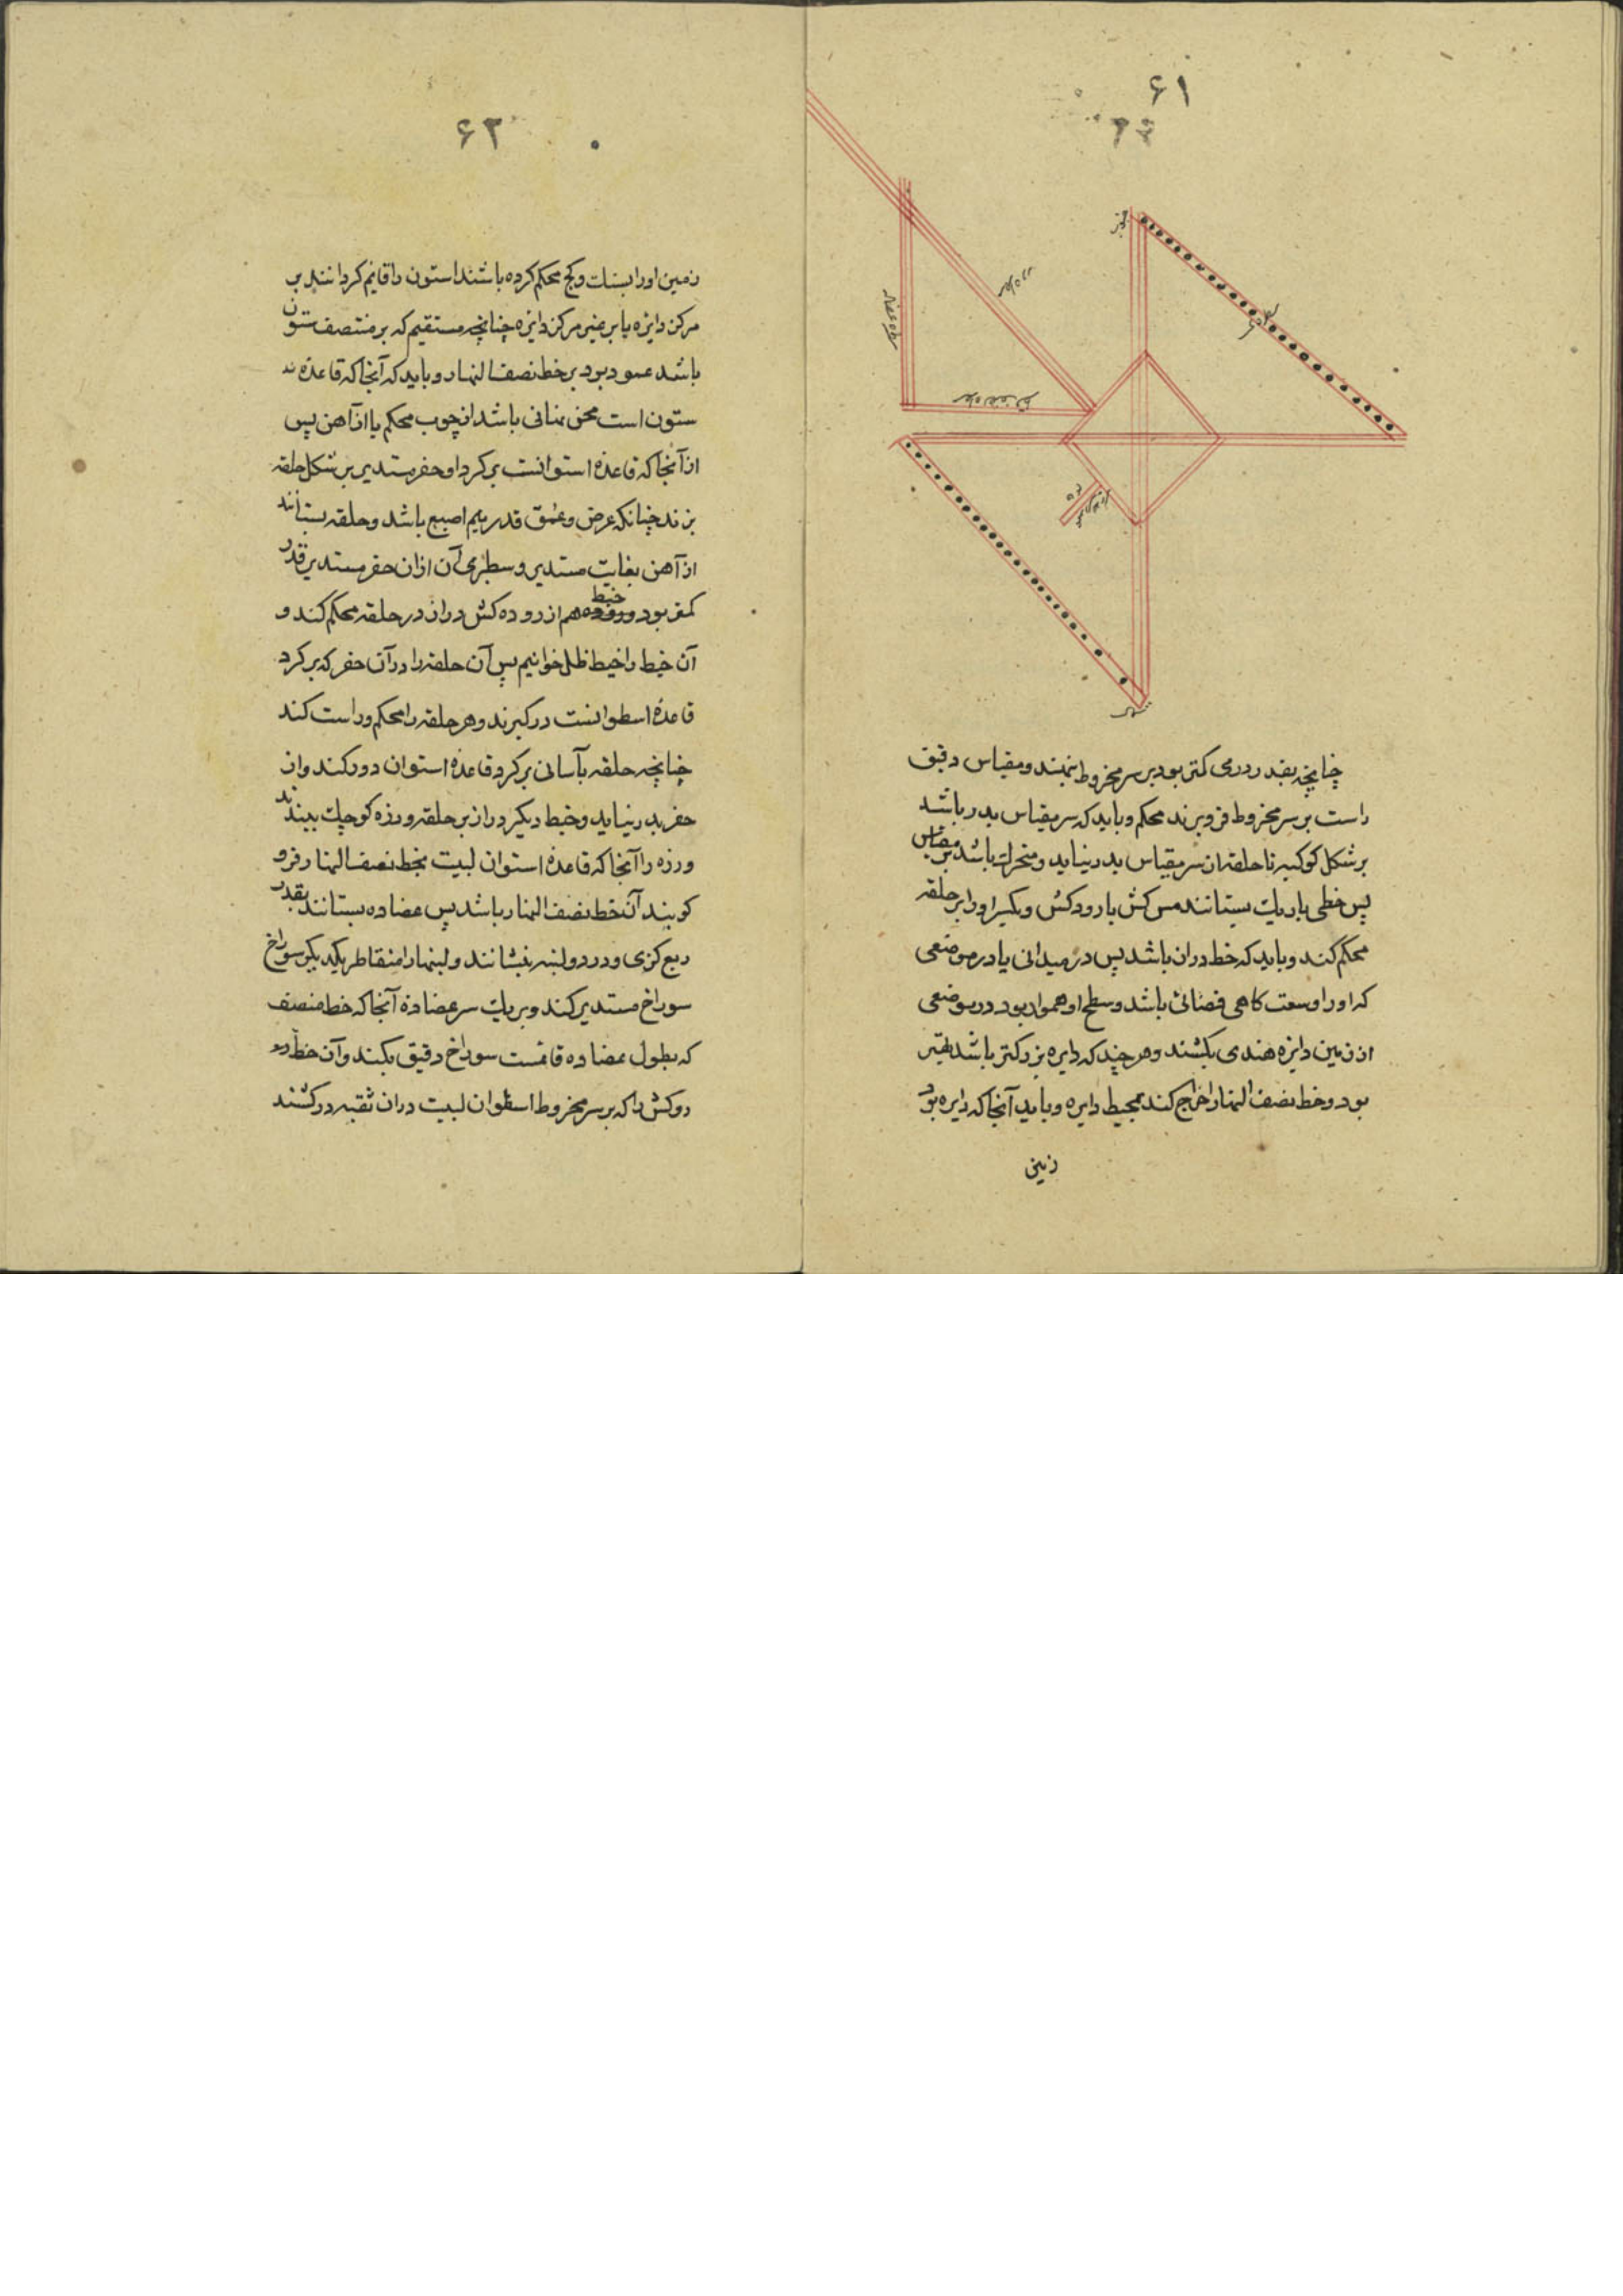 ۶۱
جنوب
چنانچه بقدر درمی کمتر بود بر سر مخروط نهند و مقیاس دقیق
راست بر سر مخروط فرو برند محکم و باید که سر مقیاس بدر باشد
بر شکل کوکبه تا حلقه از سر مقیاس بدر نیاید و متحرک باشد بر مقیاس
پس خطی باریک بستانند مس کش یا رود کش و یکسر او را بر حلقه
محکم کند و باید که خط دران باشد پس در میدانی یا در موضعی
که او را وسعت کاهی فضائی باشد و سطح او هموار بود در موضعی
از زمین دایره هندی بکشند و هر چند که دایره بزرکتر باشد بهتر
بود و خط نصف النهار اخراج کند بمحیط دایره و باید آنجا که دایره بود
زمین
۶۲
زمین او را بسنک و کج محکم کرده باشند استون را قایم کردانند بر
مرکز دایره یا بر غیر مرکز دایره چنانچه مستقیم که بر منتصف ستون
باشد عمود بود بر خط نصف النهار و باید که آنجا که قاعده
ستون است باشد از چوب محکم یا از آهن پس
از آنجا که قاعده استوانست بر کرد او حفر مستدیر بر شکل حلقه
بزند چنانکه عرض و عمق قدر نیم اصبع باشد و حلقه بستانند
از آهن بغایت مستدیر و سطبری آن ازان حفر مستدیر قدر
کمتر بود و خیط هم از روده کش دراز در حلقه محکم کند و
آن خیط را خیط ظل خوانیم پس آن حلقه را در آن حفر که بر کرد
قاعده اسطوانست در کیرند و هر حلقه را محکم و راست کند
چنانچه حلقه بآسانی بر کرد قاعده استوان دور کند و از
حفر بدر نیاید و خیط دیکر دراز بر حلقه و رزه کوچک ببندند
و رزه را آنجا که قاعده استوان لبیت بخط نصف النهار فرو
کوبند آن خط نصف النهار باشد پس عضاده بستانند بقدر
ربع کزی و در دو لبنه بنشانند و لبنها را متقاطر یکدیکر سوراخ
سوراخ مستدیر کند و بر یک سر عضاده آنجا که خط منصف
که بطول عضاده قائمست سوراخ دقیق بکند و آن خط
رو کش را که بر سر مخروط اسطوان لبیت دران ثقبه در کشند